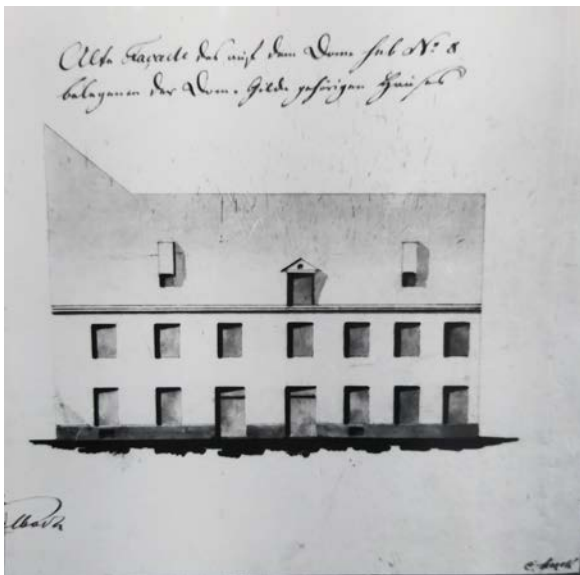 Alte Façade des auf dem Dome sub Nº 8
belegenen der Dom-Gilde gehörigen Hauses